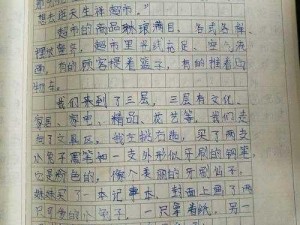 想去逛天生祥超市。"
超市的商品琳琅满目，各式各样，
理货整齐，超市里光线充足、空气流
通，有的顾客提着篮子，有的推着
物车。
我们来到了三层，三层有文化、
家居、家电、精品、花艺等，我们
到了文具区，我左挑右选，买了两支
小兔子黑笔和一支外形似牙刷的钢笔，
它是粉色的，像个美丽的牙刷钥子，
妹妹买了一本记事本，封面上画了两
只可爱的小兔子，一只拿着纸，另一